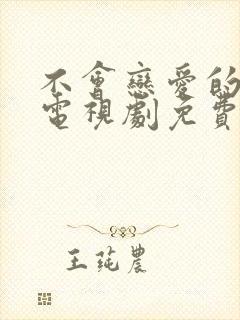 不會戀愛的
電視劇免費
王莼農